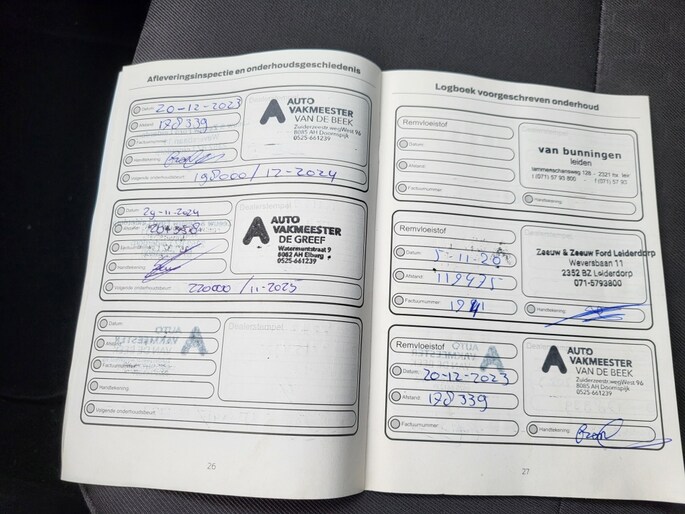 Afleveringsinspectie en onderhoudsgeschiedenis
Datum: 20-12-2023
Afstand: 178339
Factuurnummer:
Handtekening:
Volgende onderhoudsbeurt: 198000/12-2024
AUTO
VAKMEESTER
VAN DE BEEK
Zuiderzeestr.wegWest 96
8085 AH Doornspijk
0525-661239
Datum: 29-11-2024
Handtekening:
Volgende onderhoudsbeurt: 220000/11-2025
AUTO
VAKMEESTER
DE GREEF
Watermuntstraat 9
8082 AH Elburg
0525-661239
Datum:
Afstand:
Factuurnummer:
Handtekening:
Volgende onderhoudsbeurt:
26
Logboek voorgeschreven onderhoud
Remvloeistof
Datum:
Afstand:
Factuurnummer:
van bunningen
leiden
lammenschansweg 128 - 2321 hx leir
t (071) 57 93 800
Handtekening:
Remvloeistof
Datum: 5-11-20
Afstand: 119475
Factuurnummer:
Zeeuw & Zeeuw Ford Leiderdorp
Weversbaan 11
2352 BZ Leiderdorp
071-5793800
Handtekening:
Remvloeistof
Datum: 20-12-2023
Afstand: 178339
Factuurnummer:
AUTO
VAKMEESTER
VAN DE BEEK
Zuiderzeestr.wegWest 96
8085 AH Doornspijk
0525-661239
Handtekening:
27